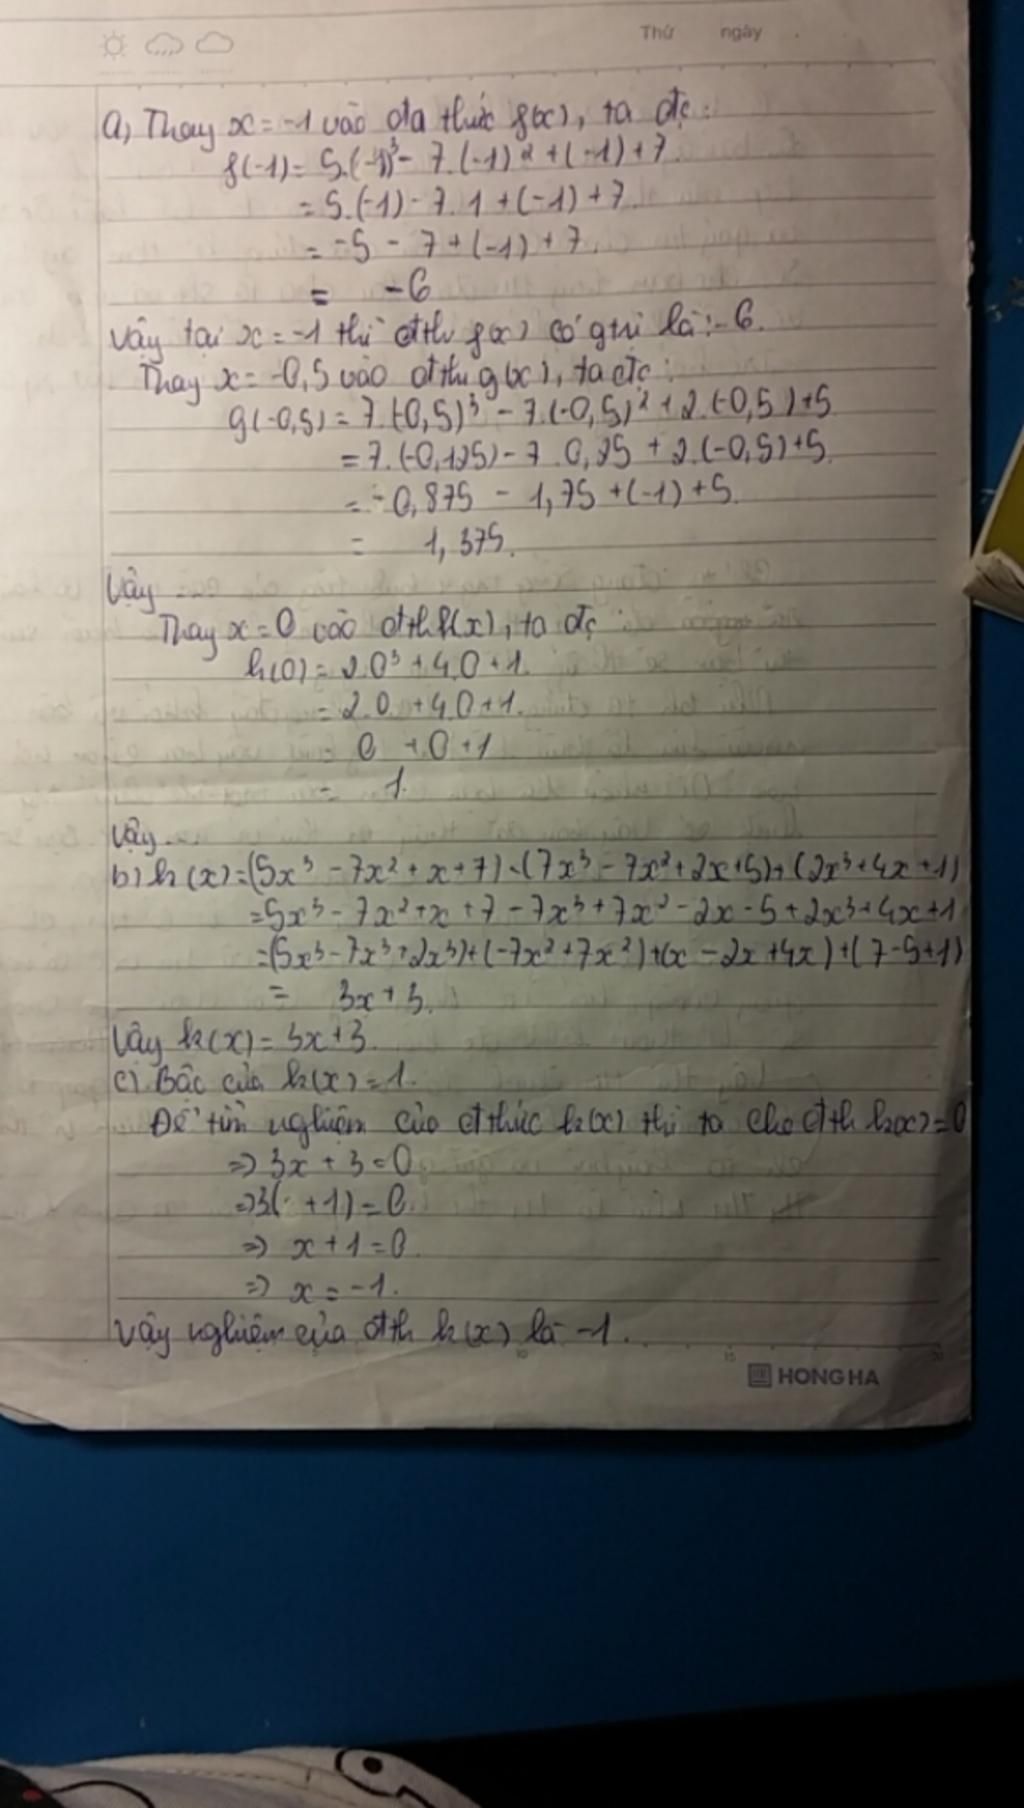 Thứ ngày
a, Thay x = -1 vào đa thức f(x), ta đc:
f(-1) = 5.(-1)³ - 7.(-1)² + (-1) + 7.
= 5.(-1) - 7.1 + (-1) + 7.
= -5 - 7 + (-1) + 7.
= -6
Vậy tại x = -1 thì đth f(x) có gtrị là: -6.
Thay x = -0,5 vào đth g(x), ta đc:
g(-0,5) = 7.(-0,5)³ - 7.(-0,5)² + 2.(-0,5) + 5
= 7.(-0,125) - 7.0,25 + 2.(-0,5) + 5.
= -0,875 - 1,75 + (-1) + 5.
= 1,375.
Vậy
Thay x = 0 vào đth h(x), ta đc:
h(0) = 2.0³ + 4.0 + 1.
= 2.0 + 4.0 + 1.
0 + 0 + 1
= 1.
Vậy...
b) k(x) = (5x³ - 7x² + x + 7) - (7x³ - 7x² + 2x + 5) + (2x³ + 4x + 1)
= 5x³ - 7x² + x + 7 - 7x³ + 7x² - 2x - 5 + 2x³ + 4x + 1
= (5x³ - 7x³ + 2x³) + (-7x² + 7x²) + (x - 2x + 4x) + (7 - 5 + 1)
= 3x + 3.
Vậy k(x) = 3x + 3.
c) Bậc của k(x) = 1.
Để tìm nghiệm của đ thức k(x) thì ta cho đth k(x) = 0
=> 3x + 3 = 0
=> 3( + 1) = 0.
=> x + 1 = 0.
=> x = -1.
Vậy nghiệm của đth k(x) là -1.
10 15 20
HONG HA